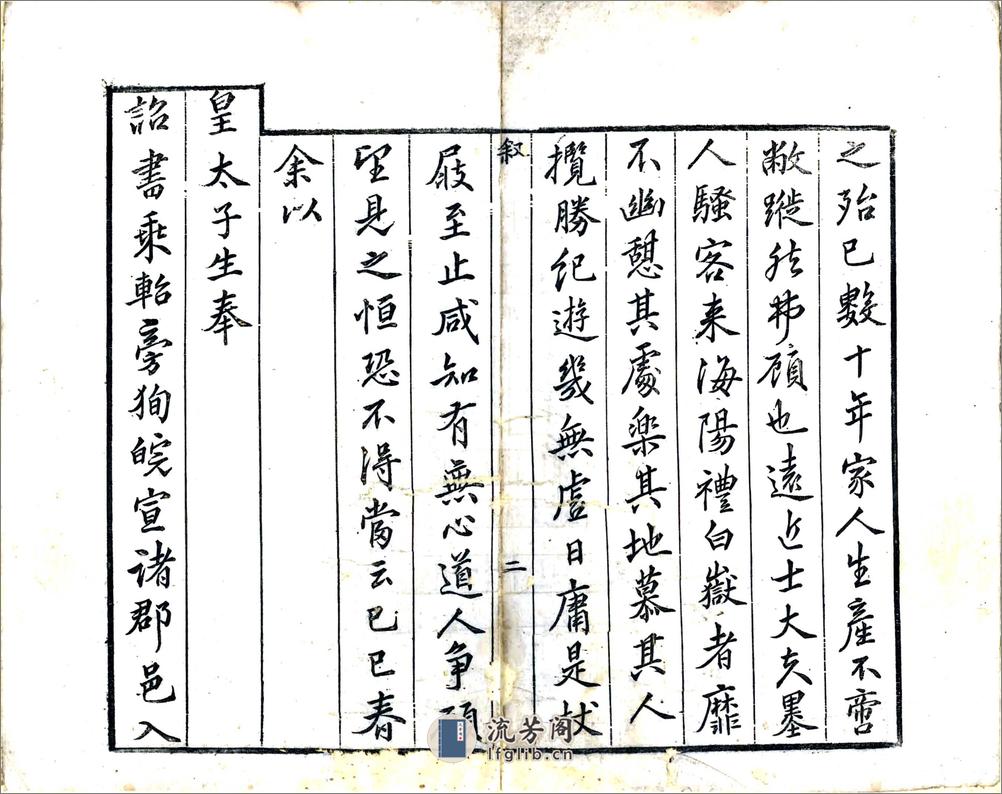 之殆已數十年家人生產不啻
敝蹝然弗顧也遠近士大夫墨
人騷客来海陽禮白嶽者靡
不幽憩其處樂其地慕其人
攬勝紀遊幾無虛日庸是杖
叙
二
屐至止咸知有無心道人争
望見之恒恐不淂當云已巳春
余以
皇太子生奉
詔書乘軺旁狥皖宣诸郡邑入
流芳阁
lfglib.cn